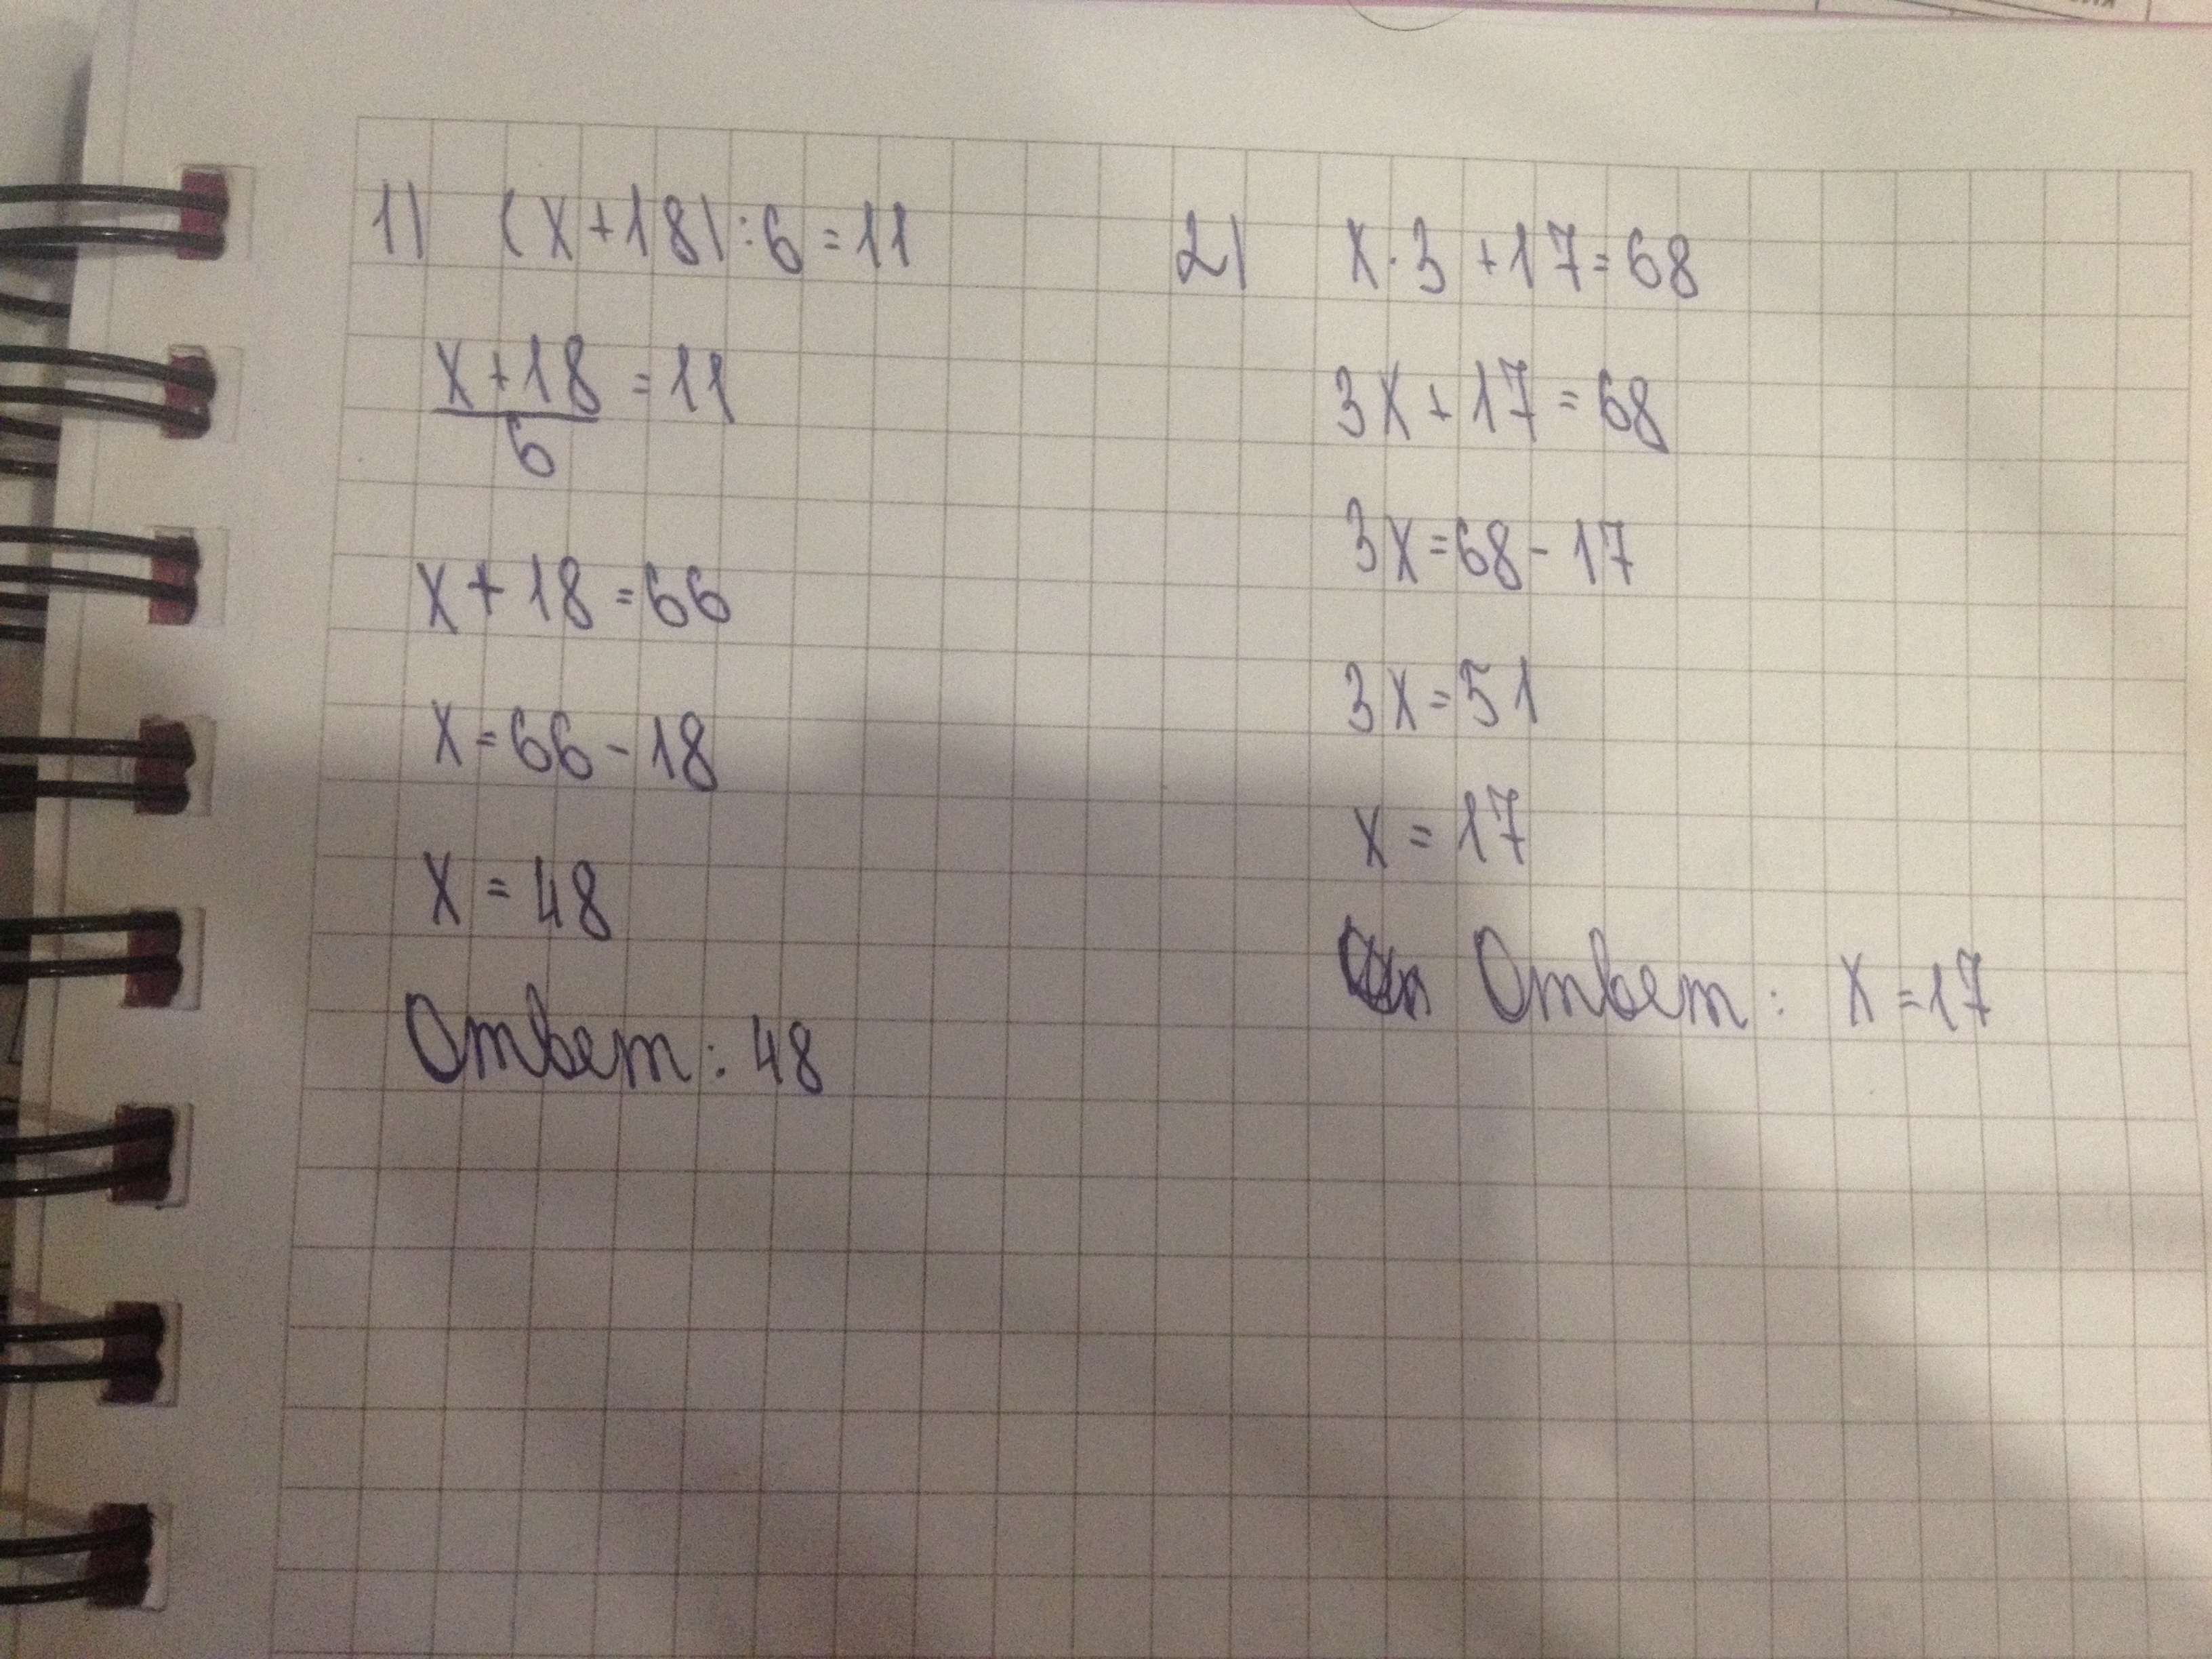 1) (x+18):6=11
x+18
6
=11
x+18=66
x=66-18
x=48
Ответ: 48
2) x·3+17=68
3x+17=68
3x=68-17
3x=51
x=17
Ответ: x=17